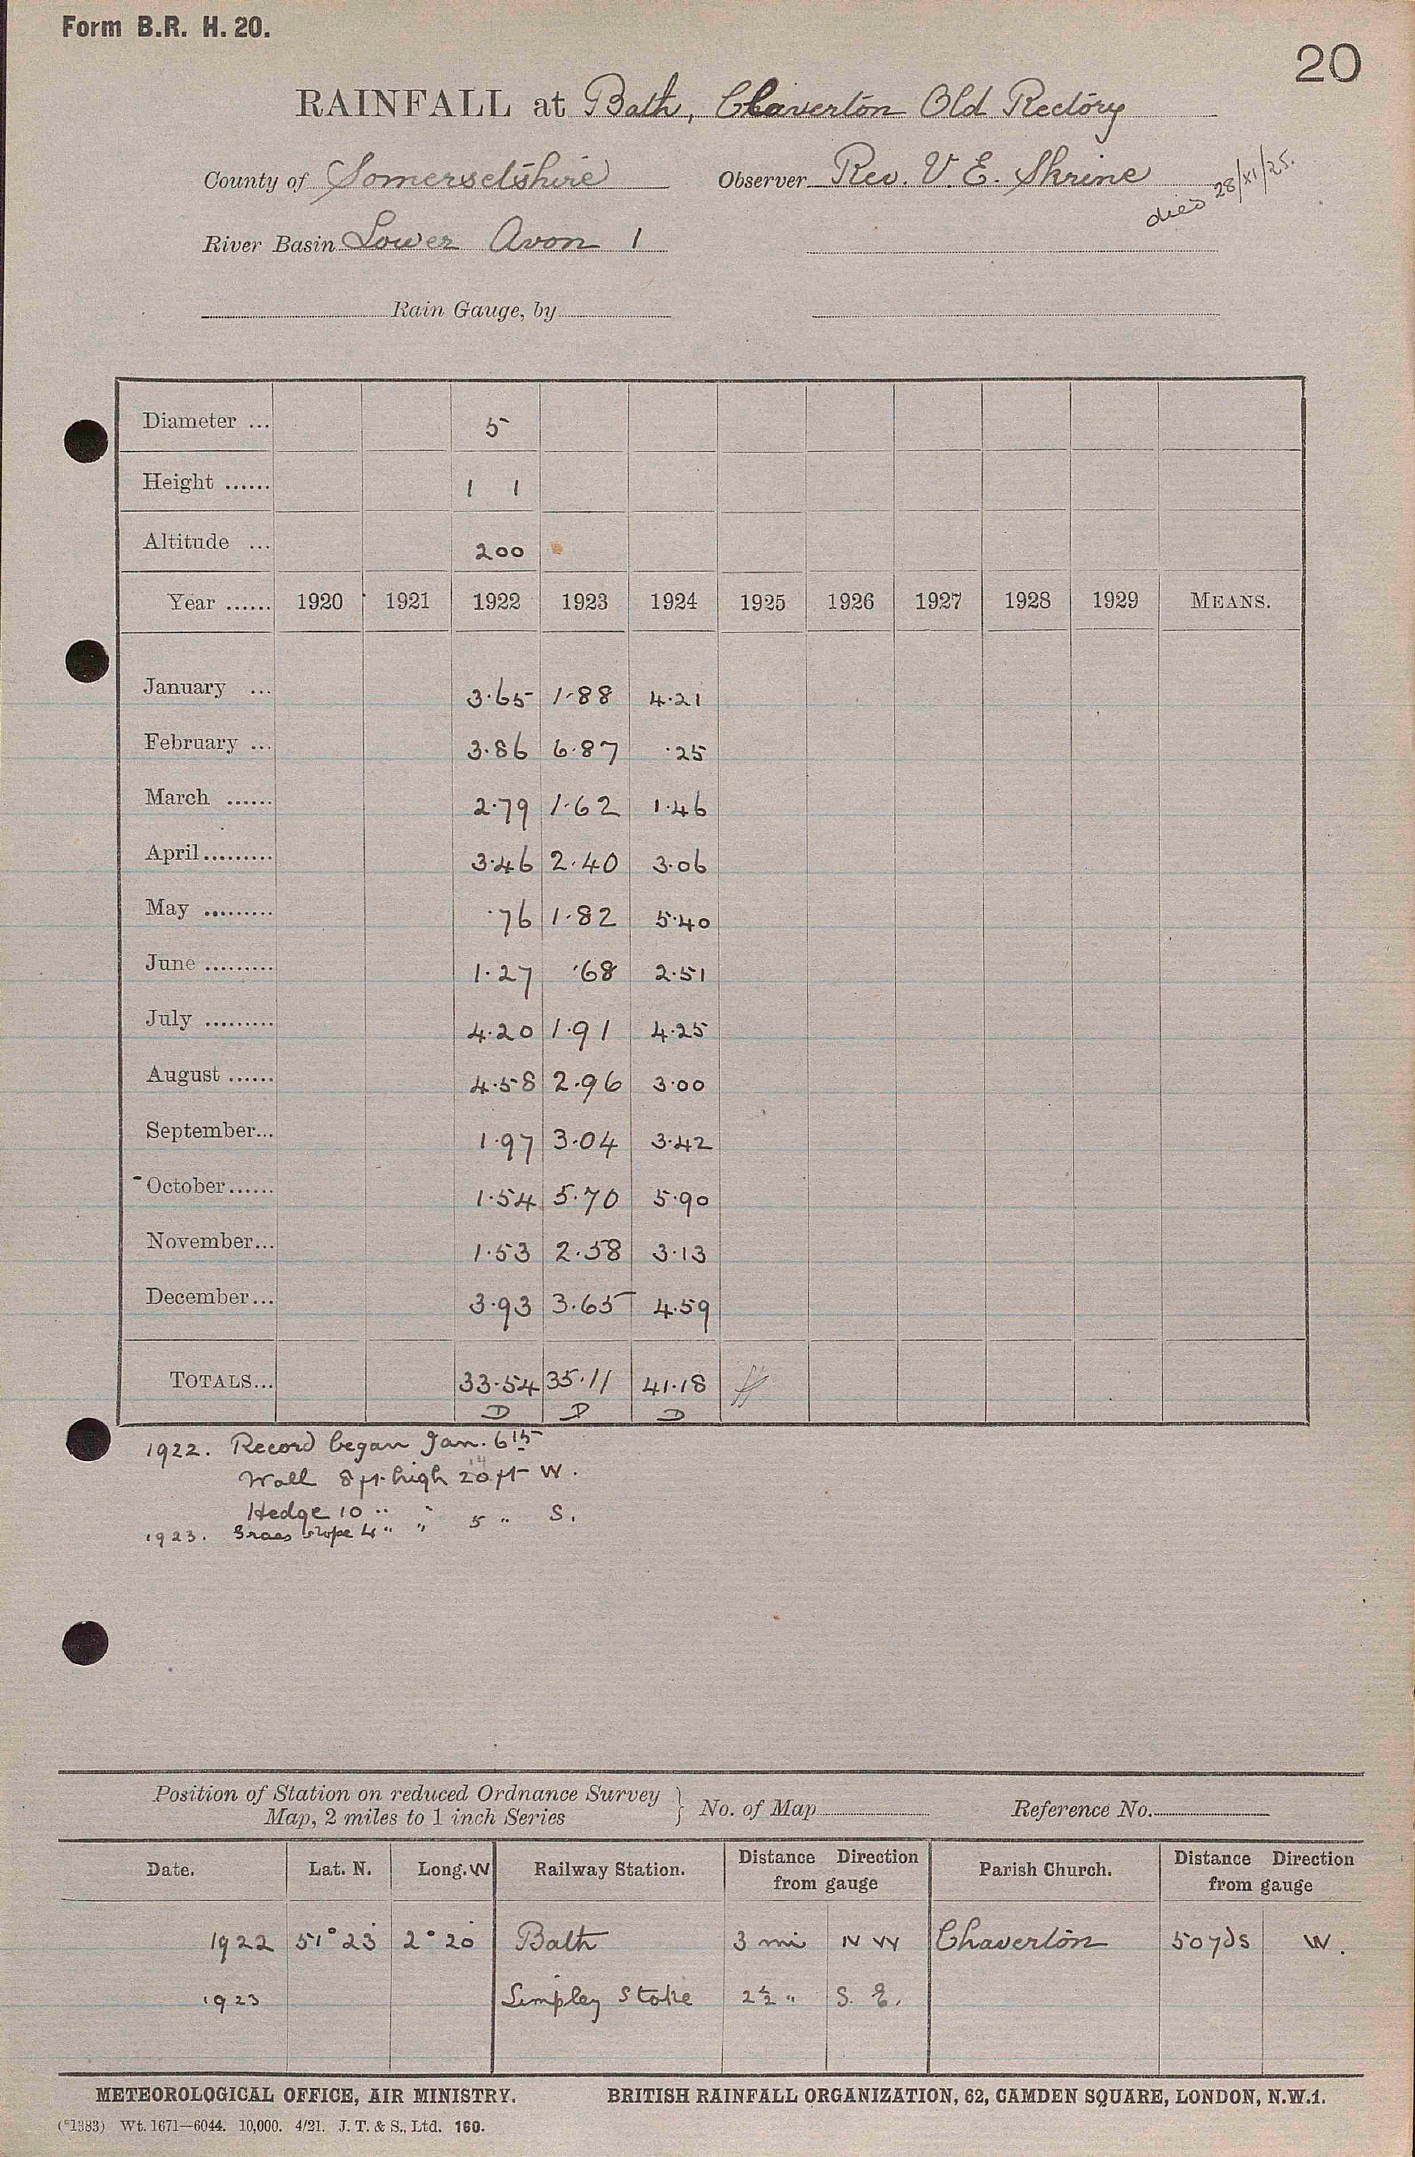 Form B.R. H. 20.
20
RAINFALL at Bath, Claverton Old Rectory
County of Somersetshire Observer Rev. V. E. Shrine
died 28/XI/25.
River Basin Lower Avon 1
Rain Gauge, by
Diameter ... 5
Height ...... 1 1
Altitude ... 200
Year ...... 1920 1921 1922 1923 1924 1925 1926 1927 1928 1929 MEANS.
January ... 3.65 1.88 4.21
February ... 3.86 6.87 .25
March ...... 2.79 1.62 1.46
April ......... 3.46 2.40 3.06
May ......... .76 1.82 5.40
June ......... 1.27 .68 2.51
July ......... 4.20 1.91 4.25
August ...... 4.58 2.96 3.00
September... 1.97 3.04 3.42
October...... 1.54 5.70 5.90
November... 1.53 2.58 3.13
December... 3.93 3.65 4.59
TOTALS... 33.54 35.11 41.18
D D D
1922. Record began Jan. 6th
Wall 8 ft. high 20 ft W.
14
Hedge 10 " " 5 " S.
1923. Grass slope 4 " "
Position of Station on reduced Ordnance Survey
Map, 2 miles to 1 inch Series } No. of Map Reference No.
Date. Lat. N. Long. W Railway Station. Distance Direction from gauge Parish Church. Distance Direction from gauge
1922 51° 23' 2° 20' Bath 3 mi N W Chaverton 50 yds W.
1923 Limpley Stoke 2½ " S. E.
METEOROLOGICAL OFFICE, AIR MINISTRY. BRITISH RAINFALL ORGANIZATION, 62, CAMDEN SQUARE, LONDON, N.W.1.
(*1383) Wt. 1671—6044. 10,000. 4/21. J. T. & S., Ltd. 160.